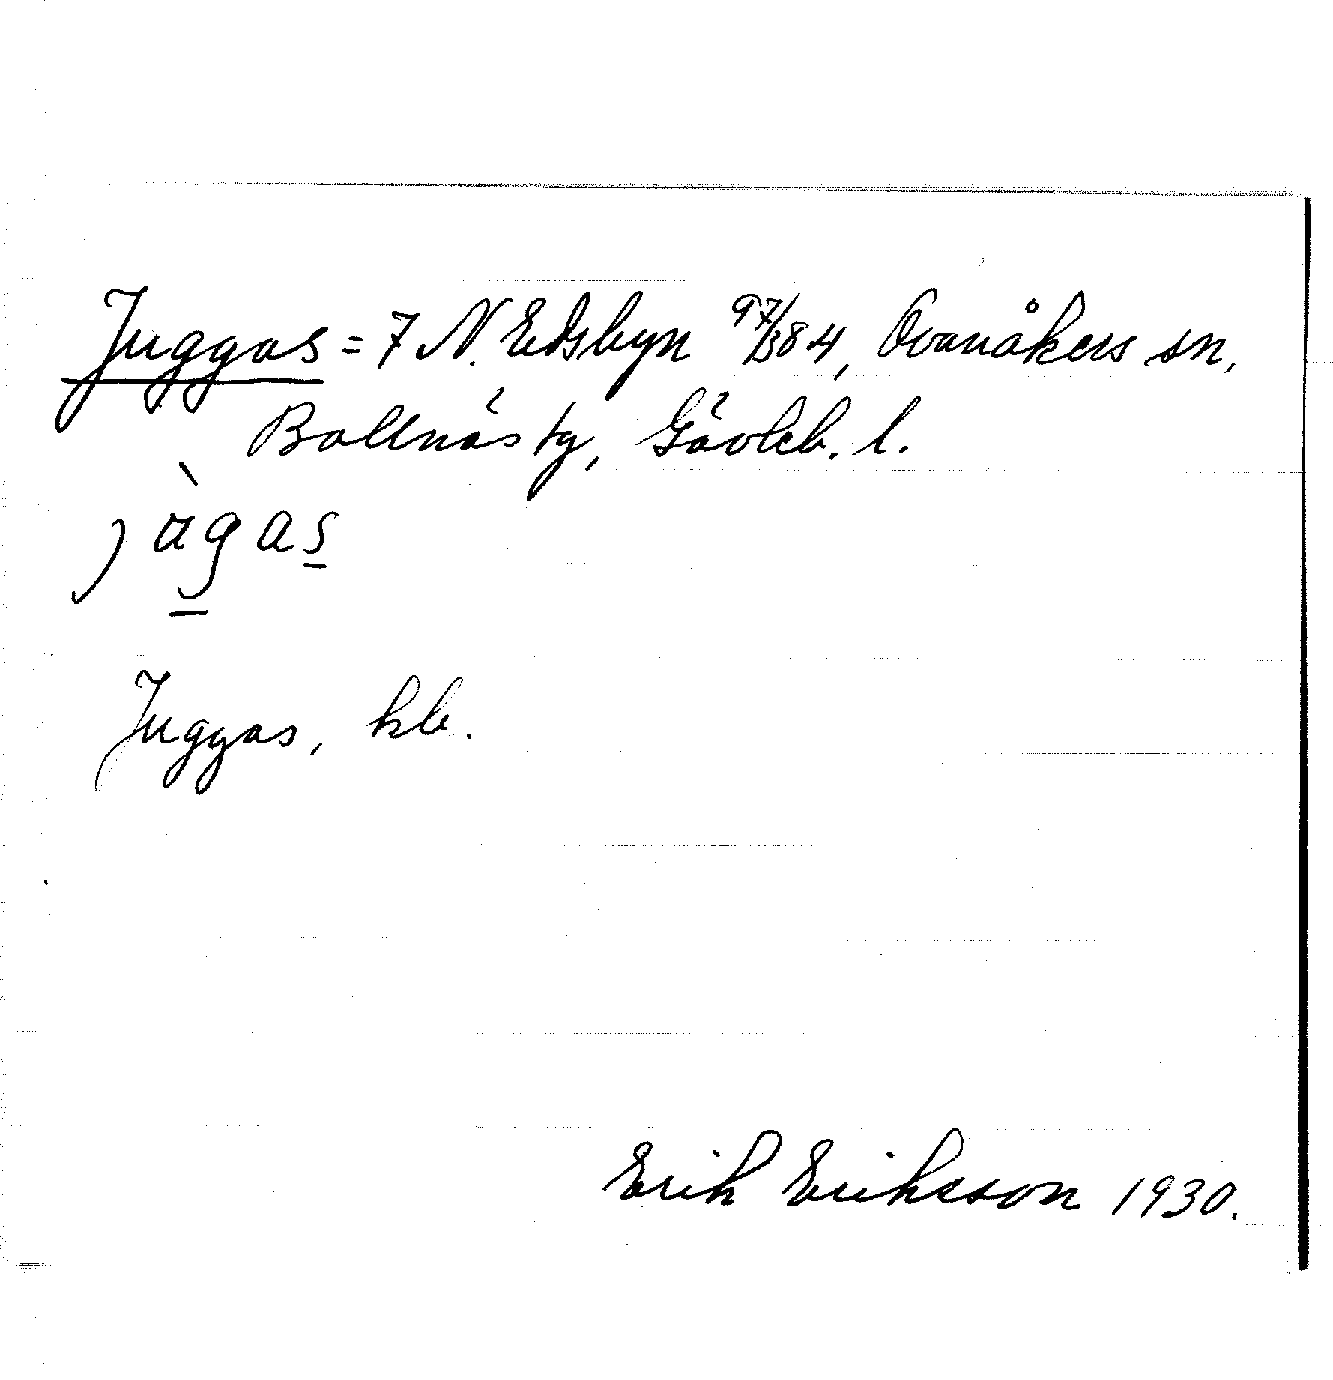 Juggas = 7 N. Edsbyn 97/384, Ovanåkers sn,
Bollnäs tg, Gävleb. l.
jàgas
Juggas, kb.
Erik Eriksson 1930.